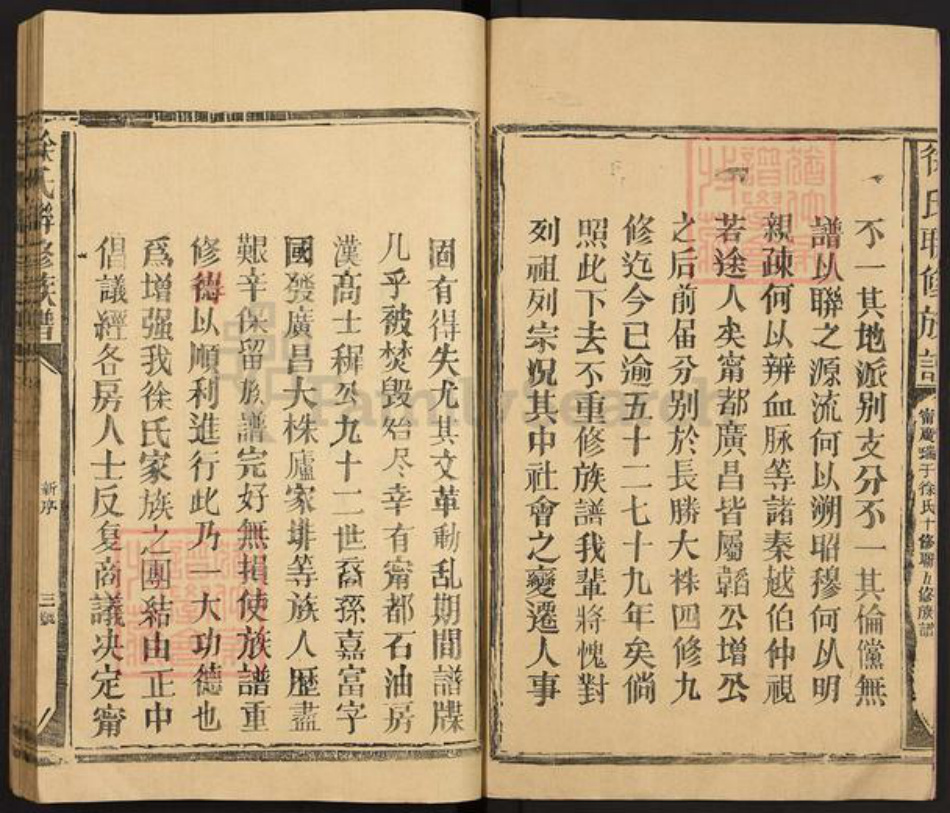 徐氏聯修族譜
不一其地派別支分不一其倫儻無
譜以聯之源流何以溯昭穆何以明
親疎何以辨血脉等諸秦越伯仲視
若途人矣甯都廣昌皆屬韜公增公
之后前届分別於長勝大株四修九
修迄今已逾五十二七十九年矣倘
照此下去不重修族譜我輩將愧對
列祖列宗況其中社會之變遷人事
固有得失尤其文革動乱期間譜牒
几乎被焚毁殆尽幸有甯都石油房
漢高士稺公九十二世裔孫嘉富字
國發廣昌大株廬家排等族人歷盡
艱辛保留族譜完好無損使族譜重
修得以順利進行此乃一大功德也
爲增强我徐氏家族之團結由正中
倡議經各房人士反复商議决定甯
徐氏聯修族譜
新序
FamilySearch